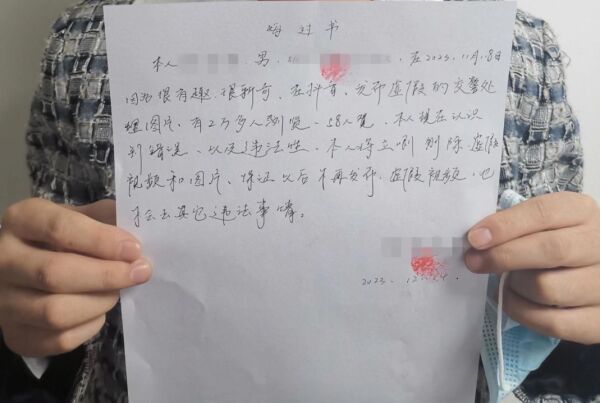 悔过书
本人 男, 在2023,11月18日
因为很有趣、很新奇、在抖音、发布虚假的交警处
理图片、有2万多人浏览、58人赞、本人现在认识
到错误、以及违法性、本人将立刻删除、虚假
视频和图片、保证以后不再发布、虚假视频、也
不会去其它违法事情。
2023、12